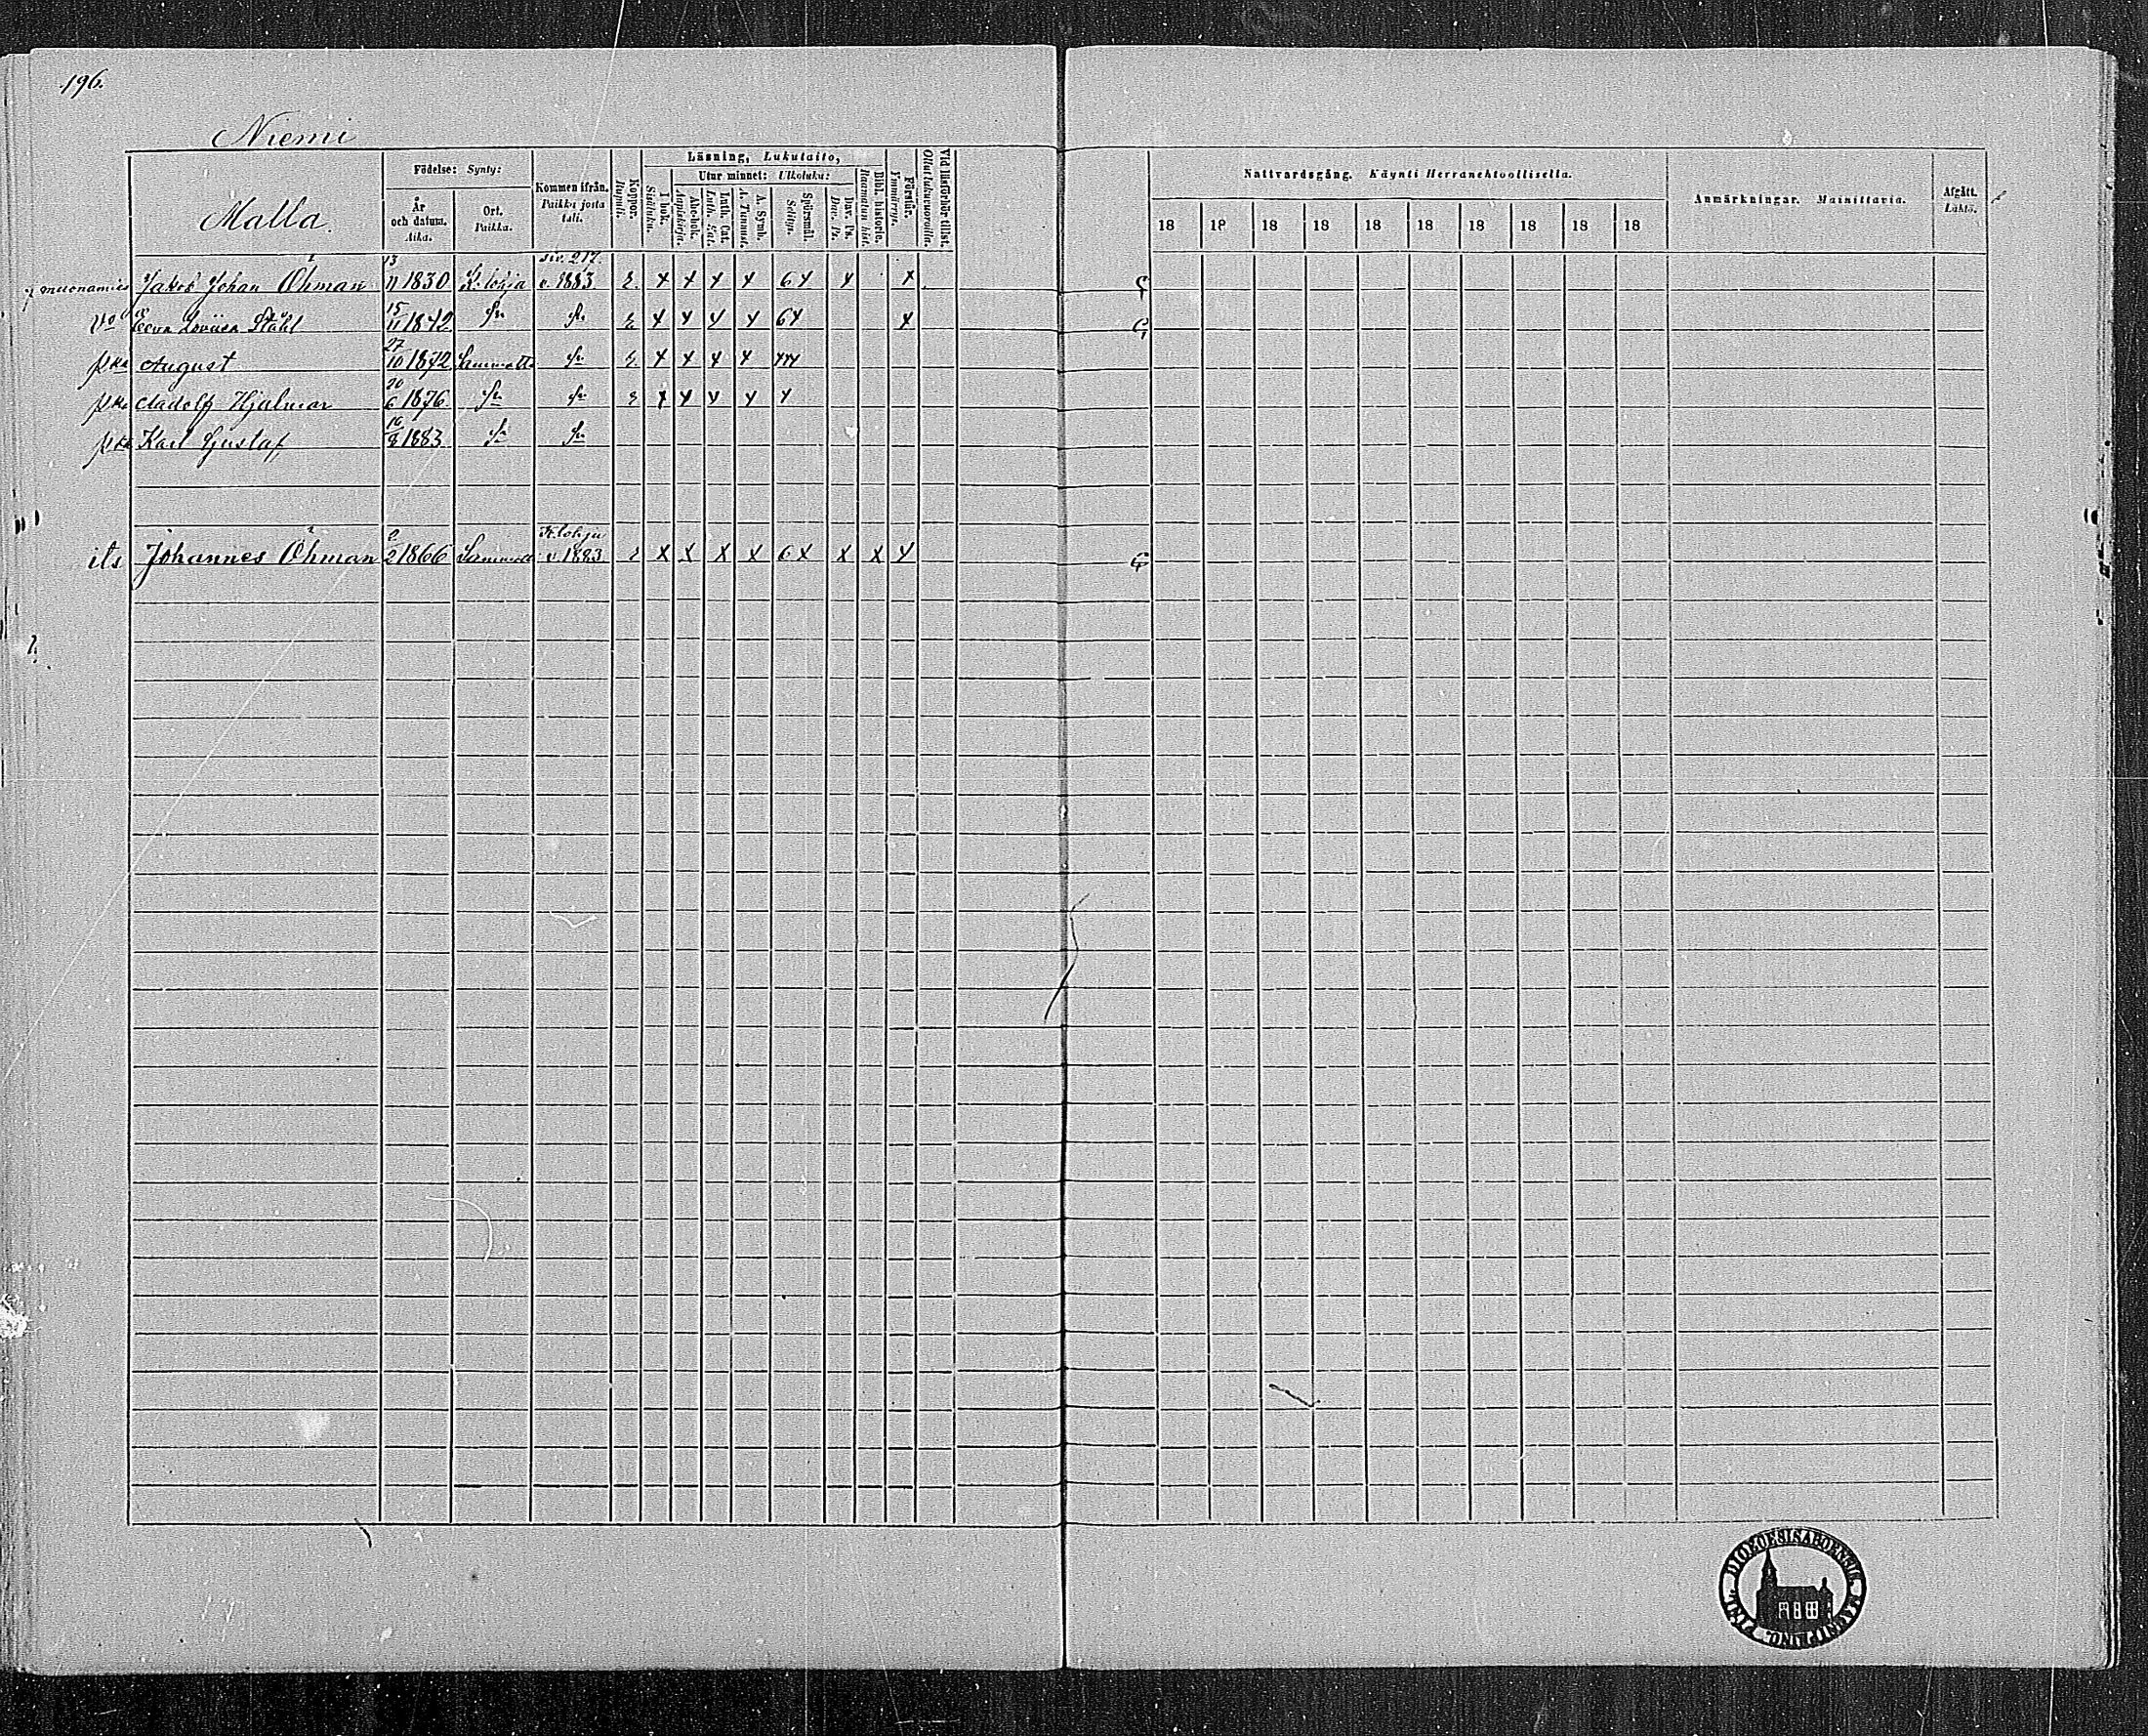 196.
Niemi
Malla.
Födelse: Synty:
År och datum. Aika.
Ort. Paikka.
Kommen ifrån. Paikka josta tuli.
Koppor. Rupuli.
Läsning, Lukutaito,
I bok. Sisäluku.
Utur minnet: Ulkoluku:
Abc-bok. Aapiskirja.
Luth. Cat. Luth. Kat.
A. Symb. A. Tunnust.
Spörsmål. Selitys.
Dav. Ps. Dav. Ps.
Bibl. historie. Raamatun hist.
Förstår. Ymmärrys.
Vid läsförhör tillst. Ollut lukuvuorolla.
Nattvardsgång. Käynti Herranehtoollisella.
18 18 18 18 18 18 18 18 18 18
Anmärkningar. Mainittavia.
Afgått. Lähtö.
siv. 217.
Jakob Johan Öhman 13/11 1830 K. lohja v. 1883 x x x x 6x x x
vo Eeva Loviisa Ståhl 15/11 1842 x x x x 6x x
pka August 27/10 1872 Sammatti x x x x xxx
pka Aadolf Hjalmar 20/6 1876. x x x x x
pka Karl Gustaf 16/8 1883
K. lohja
its Johannes Öhman 2/2 1866 Sammatti v. 1883 x x x x 6x x x x
DIOECESIS ABOENSIS